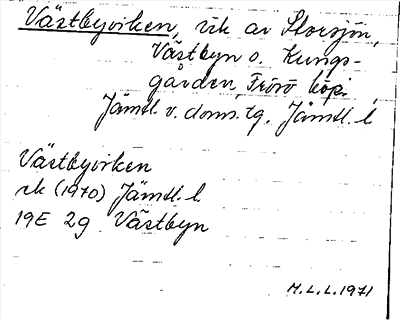 Västbyviken, vik av Storsjön,
Västbyn o. Kungs-
gården, Frösö köp.,
Jämtl. v. doms.tg. Jämtl. l.
Västbyviken
vk (1970) Jämtl. l.
19E 2g Västbyn
M.L.L. 1971